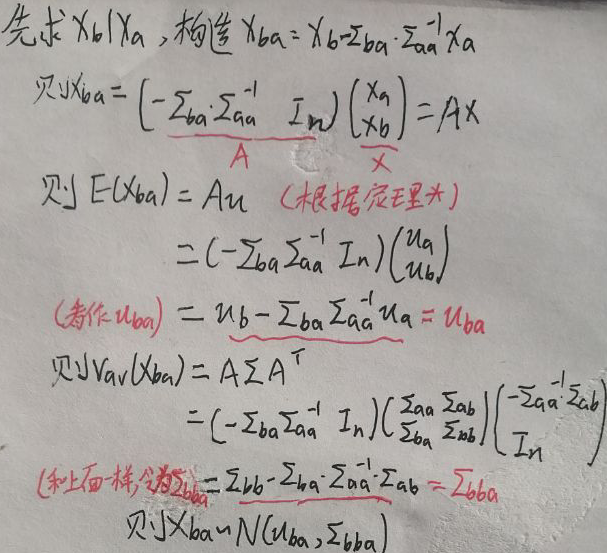 先求 x_b|x_a , 构造 x_{ba} = x_b - Σ_{ba}·Σ_{aa}^{-1} x_a
则 x_{ba} = (-Σ_{ba}·Σ_{aa}^{-1} I_n) (x_a x_b) = Ax
A x
则 E(x_{ba}) = Au (根据定理*)
= (-Σ_{ba} Σ_{aa}^{-1} I_n) (u_a u_b)
(看作 u_{ba}) = u_b - Σ_{ba} Σ_{aa}^{-1} u_a = u_{ba}
则 Var(x_{ba}) = AΣA^T
= (-Σ_{ba} Σ_{aa}^{-1} I_n) (Σ_{aa} Σ_{ab} Σ_{ba} Σ_{bb}) (-Σ_{aa}^{-1}·Σ_{ab} I_n)
(和上面一样,令为Σ_{bba} = Σ_{bb} - Σ_{ba}·Σ_{aa}^{-1}·Σ_{ab} = Σ_{bba}
则 x_{ba} ~ N(u_{ba}, Σ_{bba})